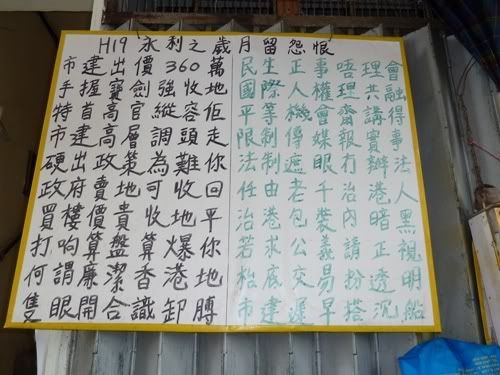 H19 (永利之歲月留怨恨)
市建出價360萬
手握寶劍強收地
特首高官縱容佢
市建高層調頭走
硬出政策為難你
政府賣地可收回
買樓價貴收地平
打响算盤算爆你
何謂廉潔香港地
隻眼開合識卸膊
民生正事唔理會
國際人權共融
平等機會齋講得
限制傳媒報實事
法制遮眼冇辦法
任由老千治港人
治港包裝內暗黑
若求公義請正視
枱底交易扮透明
市建遲早搭沉船